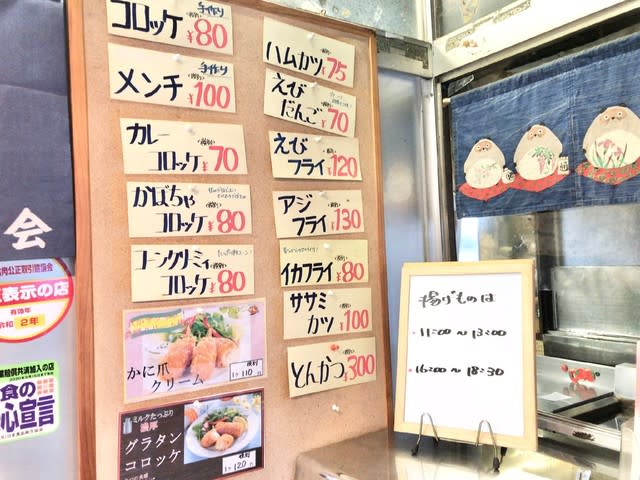 コロッケ
手作り
¥80
メンチ
手作り
¥100
カレー
コロッケ
¥70
かぼちゃ
コロッケ
¥80
コーンクリーミィ
コロッケ
¥80
かに爪
クリーム
1ケ 110円
ミルクたっぷり
濃厚
グラタン
コロッケ
1ケ 120円
ハムカツ
¥75
えび
だんご
¥70
えび
フライ
¥120
アジ
フライ
¥130
イカフライ
¥80
ササミ
カツ
¥100
とんかつ
¥300
揚げものは
・11:00〜13:00
・16:00〜18:30
会
肉公正取引協議会
表示の店
有効年
令和2年
食の
心宣言